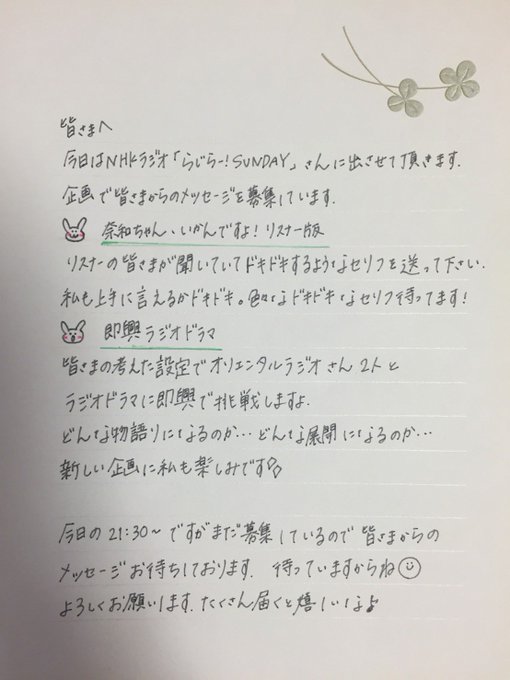 皆さまへ
今日はNHKラジオ「らじらー!SUNDAY」さんに出させて頂きます.
企画で皆さまからのメッセージを募集しています.
奈和ちゃん、いかんですよ! リスナー版
リスナーの皆さまが聞いていてドキドキするようなセリフを送って下さい.
私も上手に言えるかドキドキ。色々なドキドキなセリフ待ってます!
即興ラジオドラマ
皆さまの考えた設定でオリエンタルラジオさん2人と
ラジオドラマに即興で挑戦しますよ.
どんな物語りになるのか…どんな展開になるのか…
新しい企画に私も楽しみです♪
今日の21:30~ですがまだ募集しているので皆さまからの
メッセージお待ちしております. 待っていますからね☺
よろしくお願いします.たくさん届くと嬉しいな♪